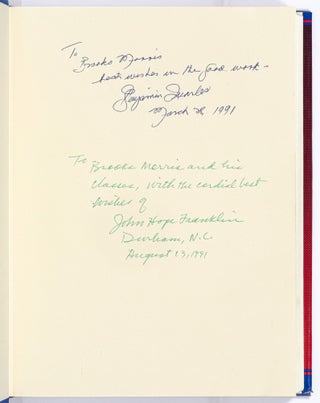 To
Brooks Morris
best wishes in the good work –
Benjamin Quarles
March 28, 1991
To Brooks Morris and his
classes, with the cordial best
wishes of
John Hope Franklin
Durham, N.C.
August 13, 1991